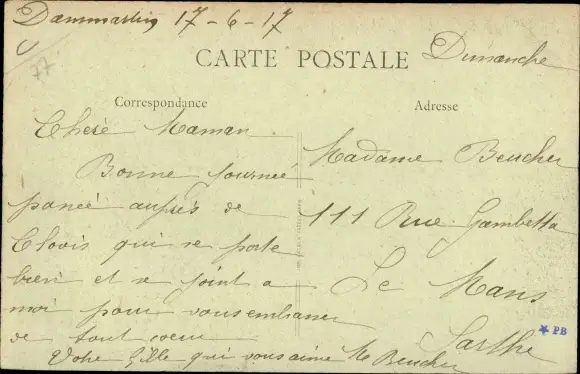 Dammartin 17-6-17
77
CARTE POSTALE
Dimanche
Correspondance
Adresse
Cheré Maman
Bonne journeé
panceé auprés de
Clovis qui se porte
bien et se joint a
moi pour vous embrasser
de tout coeur
Votre fille qui vous aime M Beucher
Madame Beucher
111 Rue Gambetta
Le Mans
Sarthe
PB